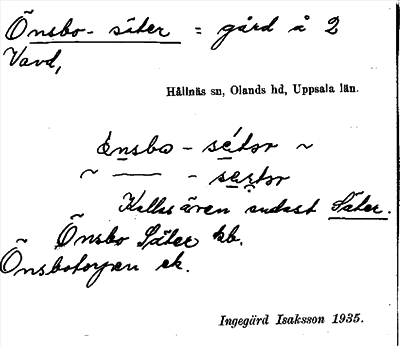 Önsbo-säter = gård å 2
Vavd,
Hållnäs sn, Olands hd, Uppsala län.
önsbo - sétər ~
~ —— - sertər
Kallas även endast Säter.
Önsbo Säter kb.
Önsbotorpen ek.
Ingegärd Isaksson 1935.